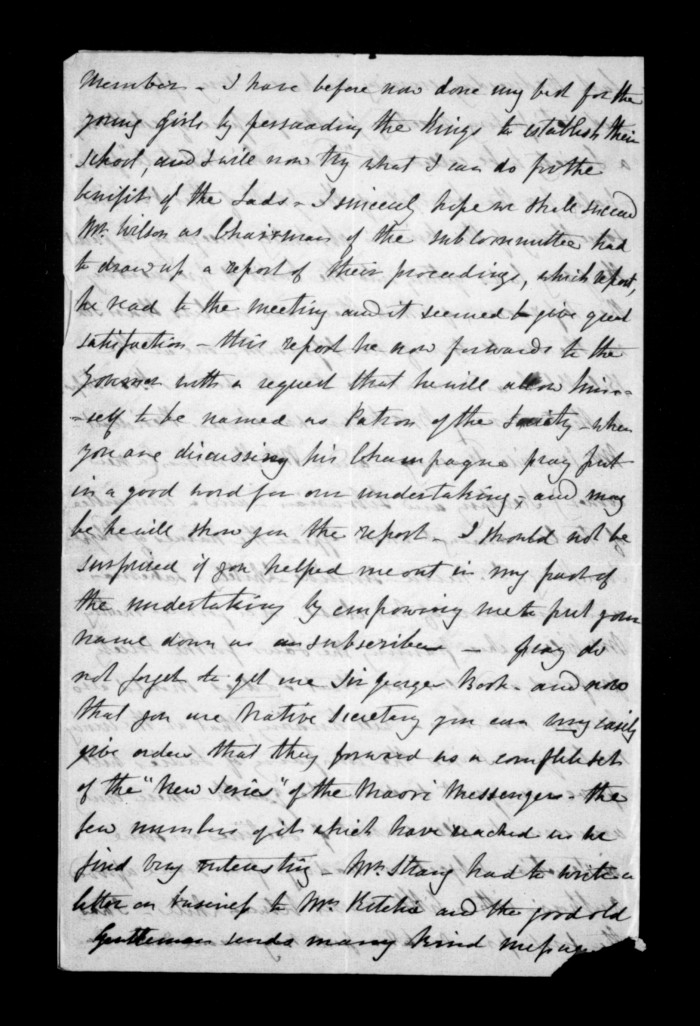 Member - I have before now done my best for the
young Girls by persuading the Kings to establish their
school, and I will now try what I can do for the
benifit of the Lads - I sincerely hope we shall succeed
Mr. Wilson as Chairman of the subCommittee had
to draw up a report of their proceedings, which report,
he read to the meeting and it seemed to give great
satisfaction - this report he now forwards to the
Governor with a request that he will allow him-
-self to be named as Patron of the Society - when
you are discussing his Champagne pray put
in a good word for our undertaking - and may
be he will show you the report - I should not be
surprised if you helped me out in my part of
the undertaking by empowring me to put your
name down as a subscriber - pray do
not forget to get me Sir Georges Book - and now
that you are Native Secretary you can very easily
give orders that they forward us a complete set
of the "New Series" of the Maori Messenger - the
few numbers of it which have reached us we
find very interesting - Mr. Strang had to write a
letter on business to Mrs. and the good old
Gentleman sends many kind